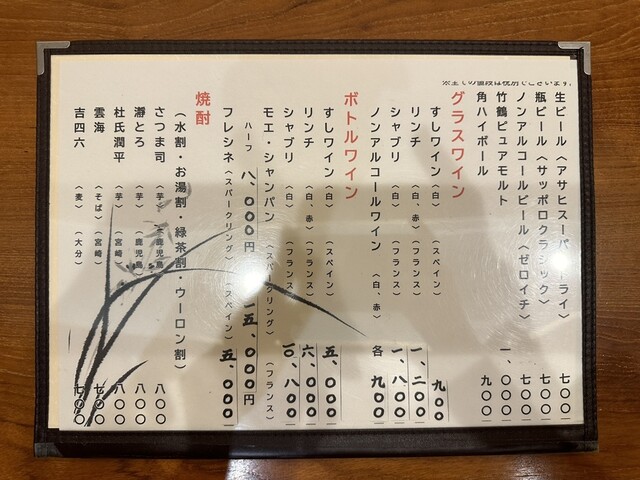 生ビール〈アサヒスーパードライ〉 七〇〇
瓶ビール〈サッポロクラシック〉 七〇〇
ノンアルコールビール〈ゼロイチ〉 七〇〇
竹鶴ピュアモルト 一、〇〇〇
角ハイボール 九〇〇
グラスワイン
すしワイン〈白〉〈スペイン〉 九〇〇
リンチ〈白、赤〉〈フランス〉 一、二〇〇
シャブリ〈白〉〈フランス〉 一、八〇〇
ノンアルコールワイン〈白、赤〉 各 九〇〇
ボトルワイン
すしワイン〈白〉〈スペイン〉 五、〇〇〇
リンチ〈白、赤〉〈フランス〉 六、〇〇〇
シャブリ〈白〉〈フランス〉 一〇、八〇〇
モエ・シャンパン〈スパークリング〉〈フランス〉
ハーフ 八、〇〇〇円 五、〇〇〇円
フレシネ〈スパークリング〉〈スペイン〉 五、〇〇〇
焼酎
（水割・お湯割・緑茶割・ウーロン割）
さつま司〈芋〉〈鹿児島〉 八〇〇
とろ〈芋〉〈鹿児島〉 八〇〇
杜氏潤平〈芋〉〈宮崎〉 八〇〇
雲海〈そば〉〈宮崎〉 七〇〇
吉四六〈麦〉〈大分〉 七〇〇